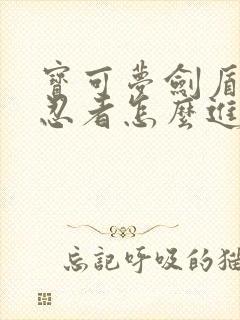 寶可夢劍盾
忍者怎麼進
忘記呼吸的貓